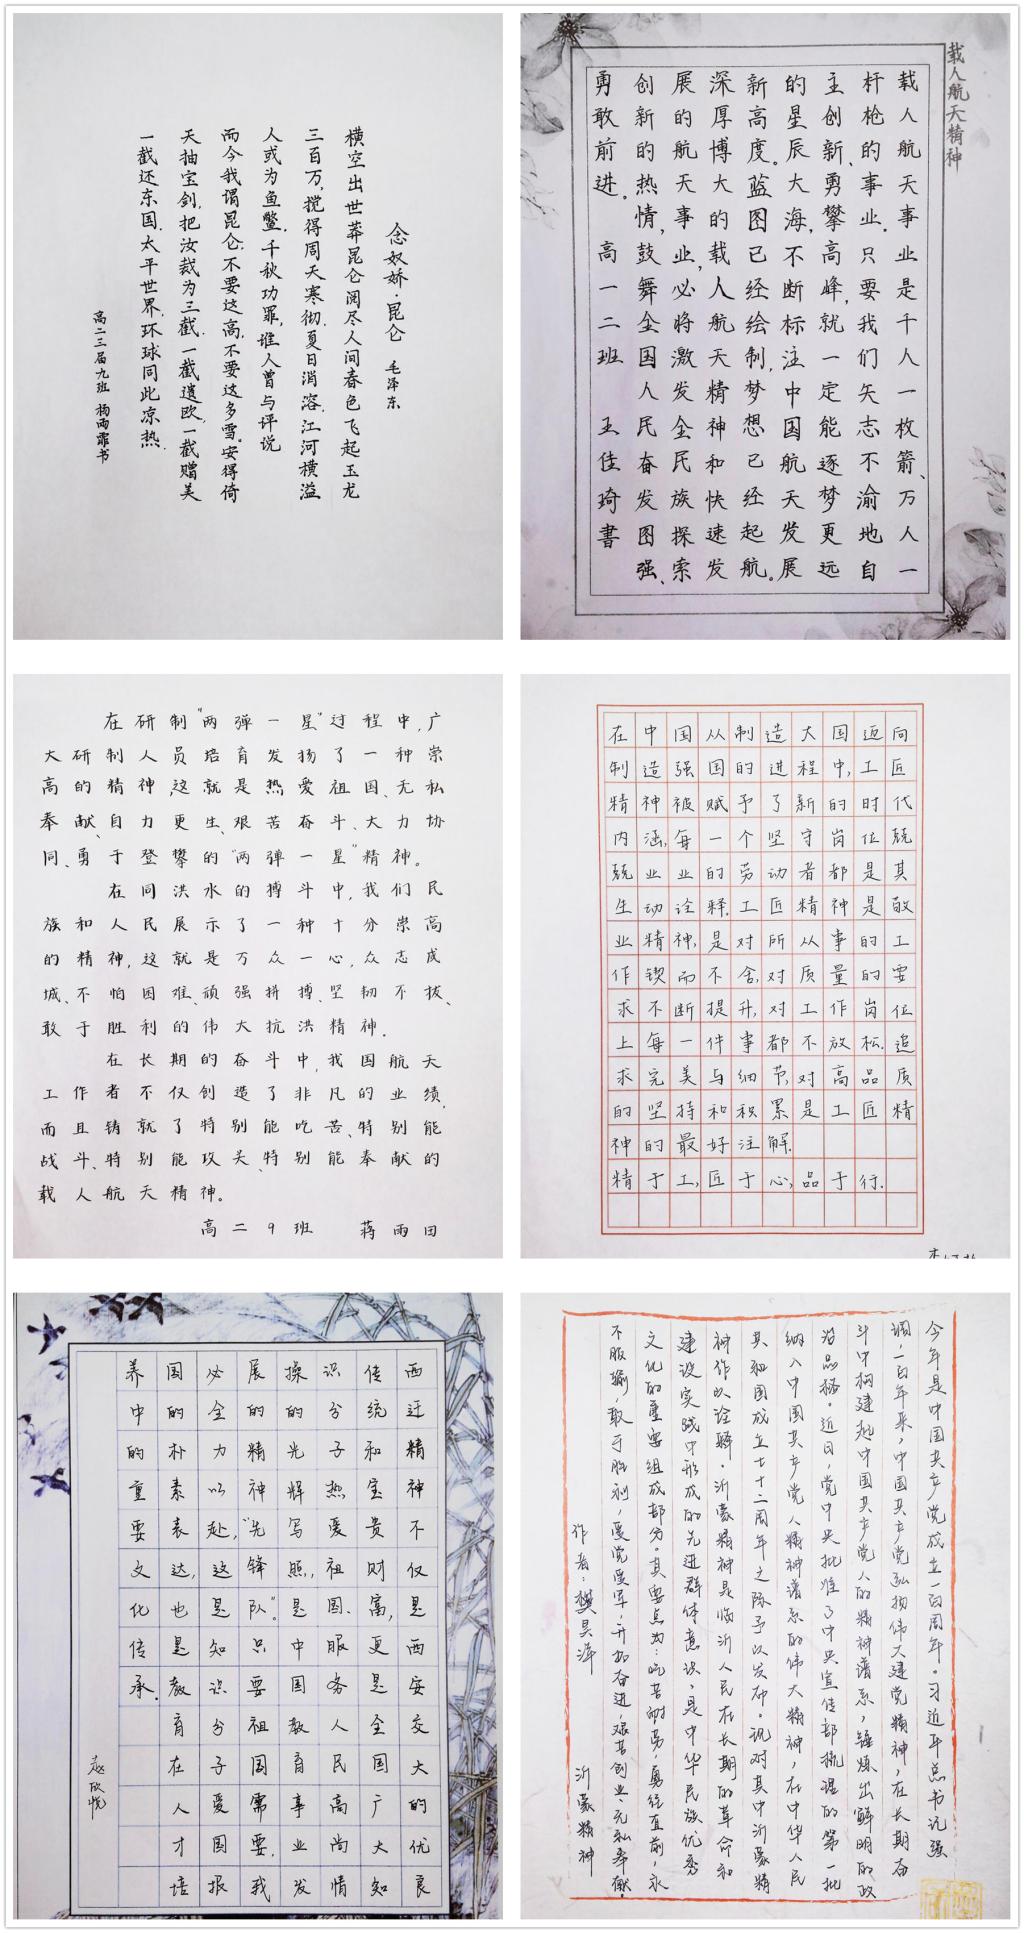 念奴娇·昆仑 毛泽东
横空出世莽昆仑阅尽人间春色飞起玉龙
三百万,搅得周天寒彻.夏日消溶.江河横溢
人或为鱼鳖.千秋功罪,谁人曾与评说
而今我谓昆仑:不要这高,不要这多雪。安得倚
天抽宝剑,把汝裁为三截.一截遗欧,一截赠美
一截还东国.太平世界,环球同此凉热.
高二三届九班 杨雨霏书
载人航天精神
载人航天事业是千人一枚箭、万人一
杆枪的事业.只要我们矢志不渝地自
主创新、勇攀高峰,就一定能逐梦更远
的星辰大海,不断标注中国航天发展
新高度。蓝图已经绘制,梦想已经起航。
深厚博大的载人航天精神和快速发
展的航天事业,必将激发全民族探索
创新的热情,鼓舞全国人民奋发图强、
勇敢前进。 高一二班 王佳琦書
在研制"两弹一星"过程中,广
大研制人员培育发扬了一种崇
高的精神,这就是热爱祖国、无私
奉献、自力更生、艰苦奋斗、大力协
同、勇于登攀的"两弹一星"精神。
在同洪水的搏斗中,我们民
族和人民展示了一种十分崇高
的精神,这就是万众一心,众志成
城、不怕困难、顽强拼搏、坚韧不拔、
敢于胜利的伟大抗洪精神.
在长期的奋斗中,我国航天
工作者不仅创造了非凡的业绩,
而且铸就了特别能吃苦、特别能
战斗、特别能攻关、特别能奉献的
载人航天精神。
高二9班 蒋雨田
在中国从制造大国迈向
制造强国的进程中,工匠
精神被赋予了新的时代
内涵,每一个坚守岗位兢
兢业业的劳动者都是其
生动诠释.工匠精神是敬
业精神,是对所从事的工
作锲而不舍,对质量的要
求不断提升,对工作岗位
上每一件事都不放松.追
求完美与细节,对高品质
的坚持和积累是工匠精
神的最好注解.
精于工,匠于心,品于行.
西迁精神不仅是西安交大的优良
传统和宝贵财富,更是全国广大知
识分子热爱祖国、服务人民高尚情
操的光辉写照,是中国教育事业发
展的精神"先锋队"。只要祖国需要,我
必全力以赴,这是知识分子爱国报
国的朴素表达,也是教育在人才培
养中的重要文化传承.
赵欣悦
今年是中国共产党成立一百周年。习近平总书记强
调,一百年来,中国共产党弘扬伟大建党精神,在长期奋
斗中构建起中国共产党人的精神谱系,锤炼出鲜明的政
治品格。近日,党中央批准了中央宣传部梳理的第一批
纳入中国共产党人精神谱系的伟大精神,在中华人民
共和国成立七十二周年之际予以发布。现对其中沂蒙精
神作以诠释。沂蒙精神是临沂人民在长期的革命和
建设实践中形成的先进群体意识,是中华民族优秀
文化的重要组成部分。其要点为:吃苦耐劳,勇往直前,永
不服输,敢于胜利,爱党爱军,开拓奋进,艰苦创业,无私奉献。
作者:樊昊泽 沂蒙精神